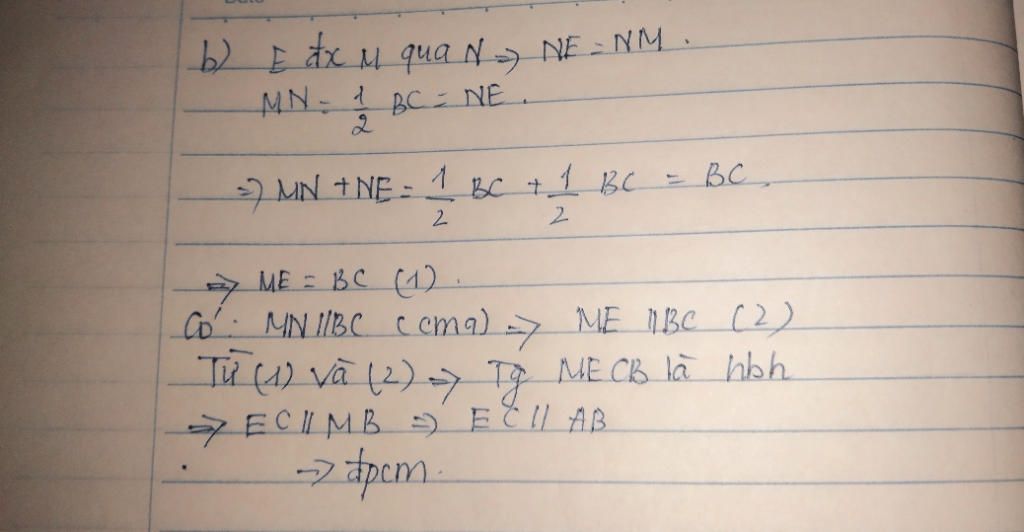 b) E đx M qua N => NE = NM.
MN = 1/2 BC = NE.
=> MN + NE = 1/2 BC + 1/2 BC = BC.
=> ME = BC (1).
Có: MN // BC (cma) => ME // BC (2)
Từ (1) và (2) => Tg MECB là hbh
=> EC // MB => EC // AB
-> đpcm.